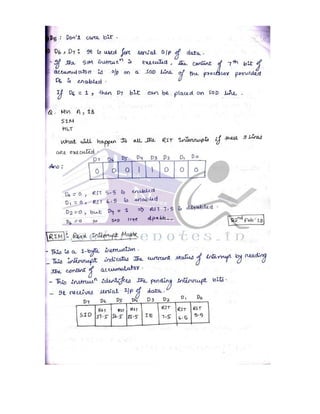 D5 : Don't care bit -
D6, D7 : It is used for serial O/P of data.
- If the SIM instrucn is executed, the content of 7th bit of
accumulator is o/p on a SOD line of the processor provided
D6 is enabled.
If D6 = 1, then D7 bit can be placed on SOD line.
Q. MVI A, 18
SIM
HLT
What will happen to all the RST Interrupts if these 3 lines
are executed -
Ans: D7 D6 D5 D4 D3 D2 D1 D0
0 0 0 1 1 0 0 0
D0 = 0, RST 5.5 is enabled
D1 = 0, RST 6.5 is enabled
D2 = 0, but D4 = 1 ⇒ RST 7.5 is disabled -
D6 = 0
RIM : Read Interrupt Mask
- This is a 1-byte instruction.
- This interrupt indicates the current status of interrupt by reading
the content of accumulator.
- This instrucn identifies the pending interrupt bits.
- It receives serial I/P of data.
D7 D6 D5 D4 D3 D2 D1 D0
SID RST I7.5 RST I6.5 RST I5.5 IE RST 7.5 RST 6.5 RST 5.5